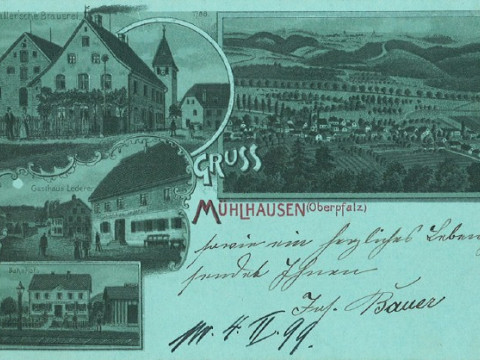 allersche Brauerei
Gasthaus Lederer
Bahnhof
GRUSS
MÜHLHAUSEN (Oberpfalz)
sowie ein herzliches Lebe
sendet Ihnen
Jos. Bauer
M. 4. II. 99.